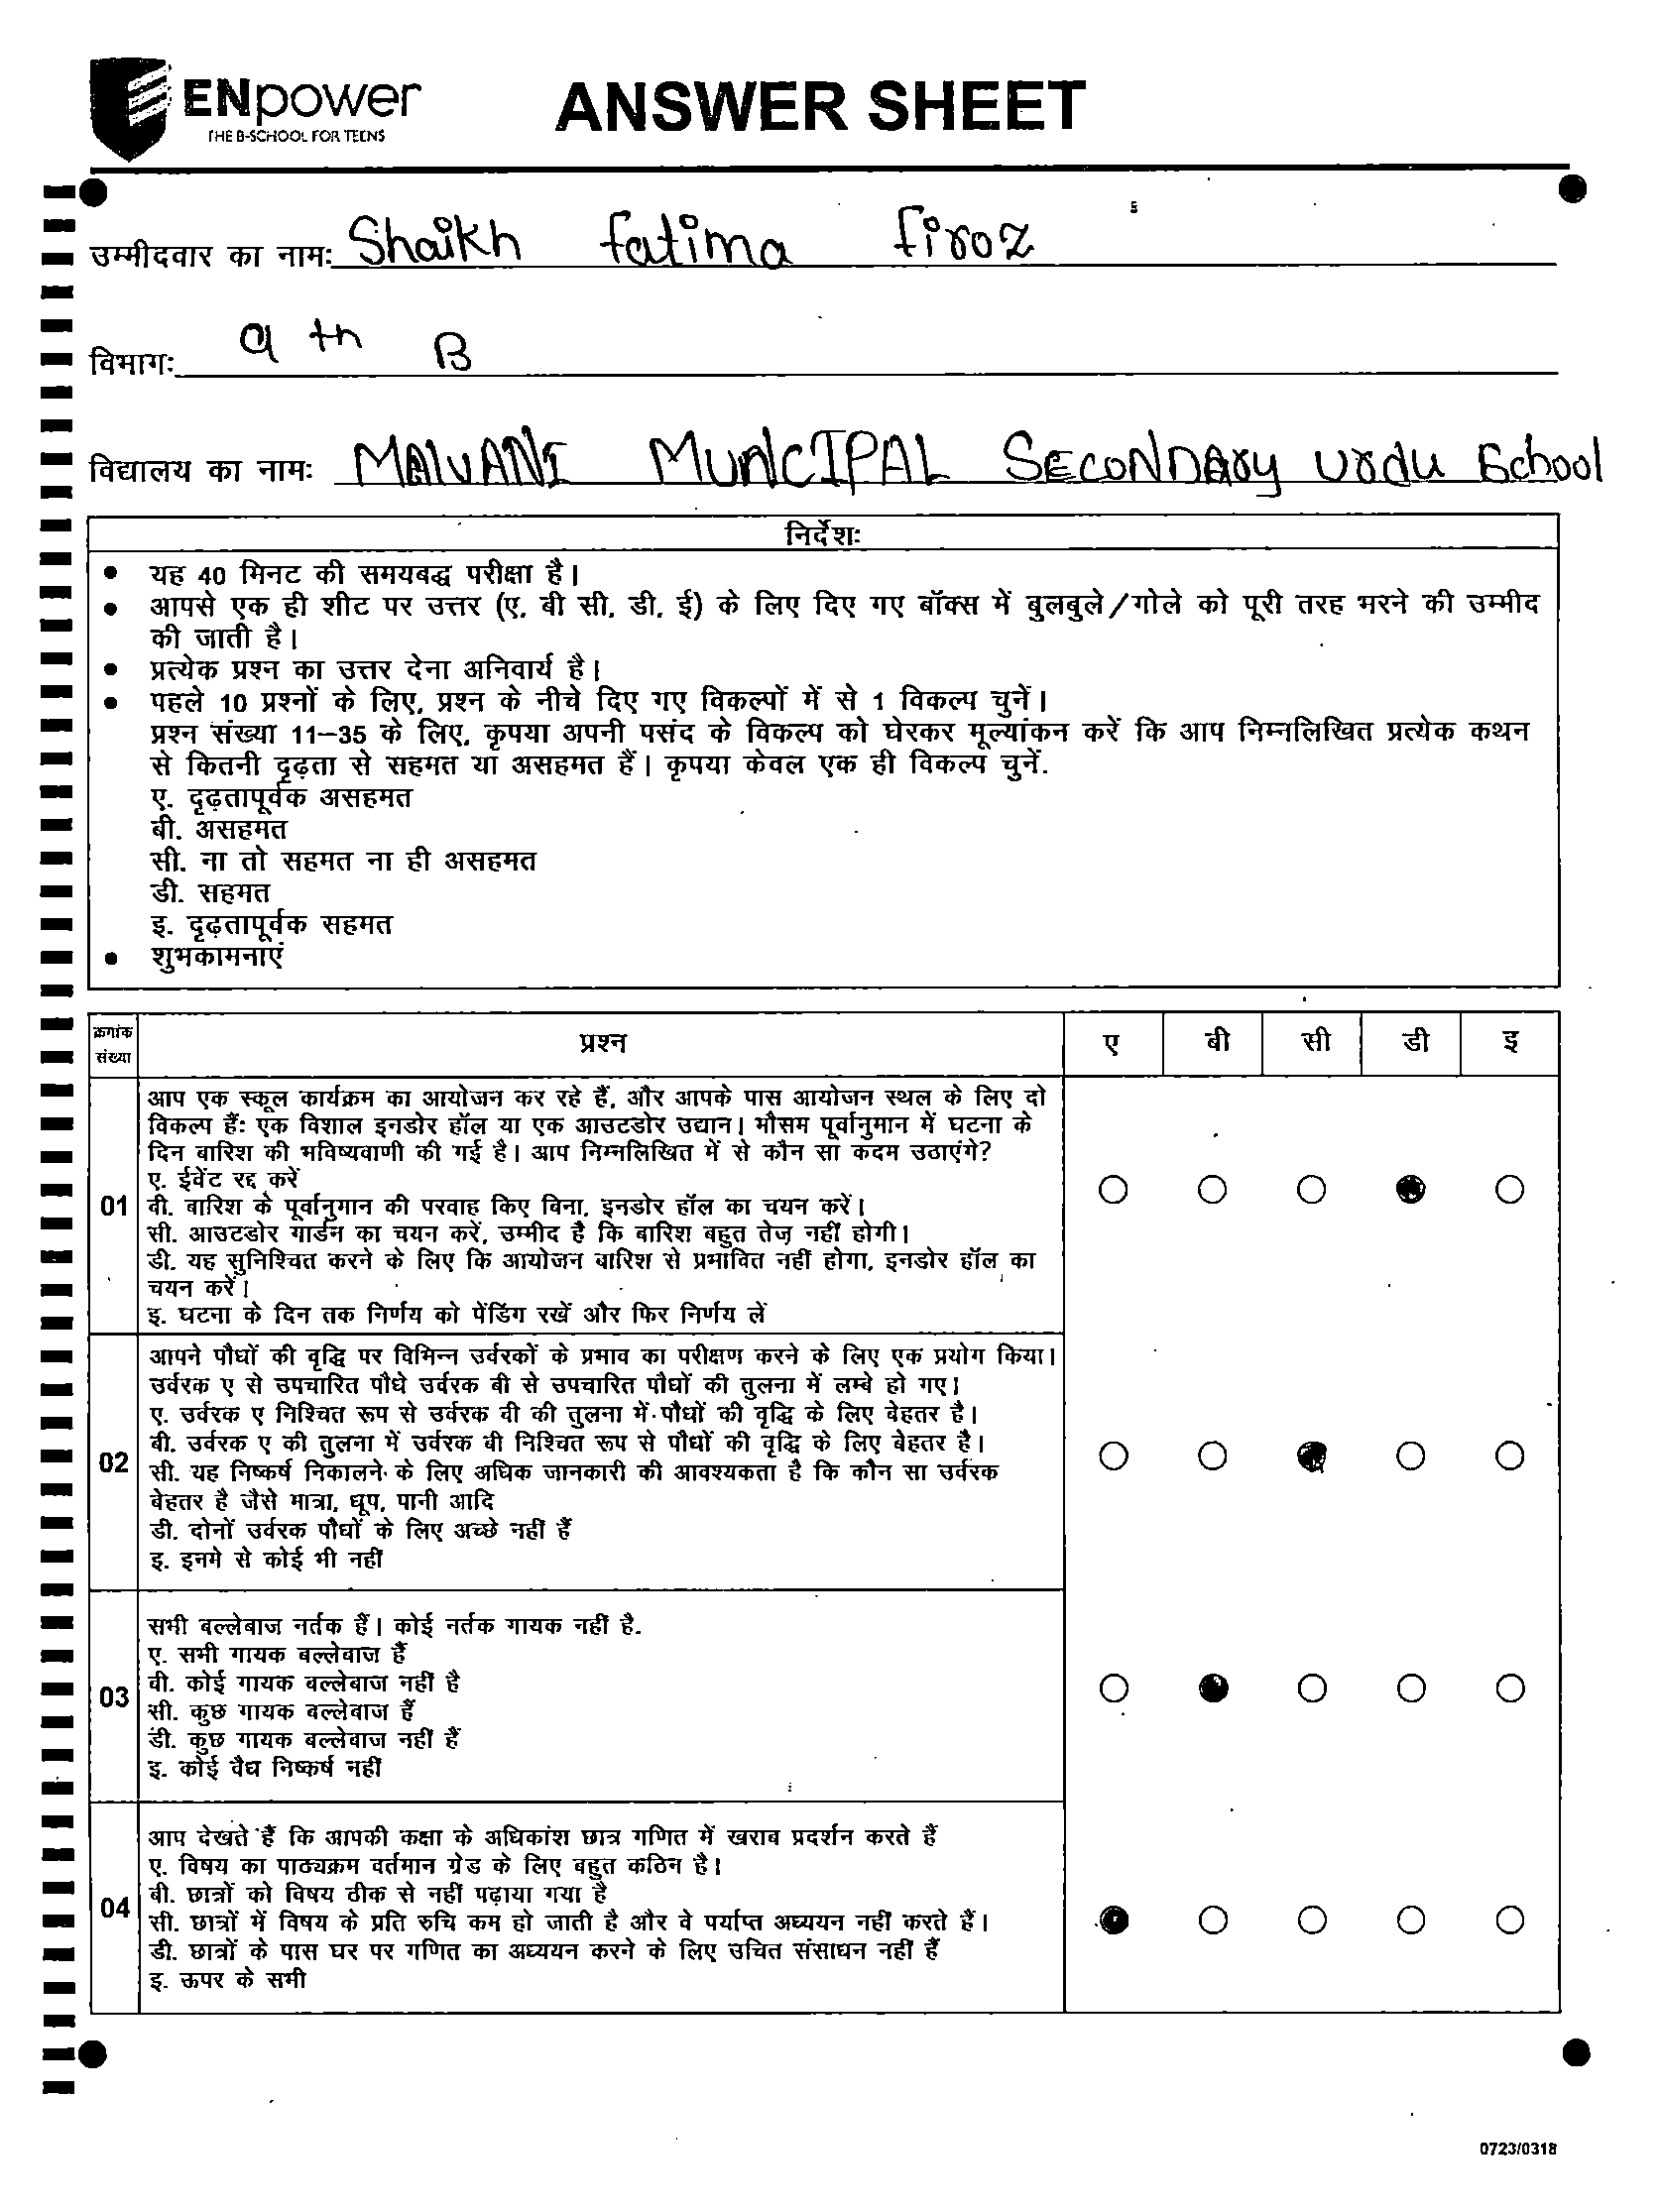 ENpower
THE B-SCHOOL FOR TEENS
ANSWER SHEET
उम्मीदवार का नामः Shaikh Fatima Firoz
विभागः 9th B
विद्यालय का नामः MALVANI MUNCIPAL SECONDARy Urdu School
निर्देशः
• यह 40 मिनट की समयबद्ध परीक्षा है।
• आपसे एक ही शीट पर उत्तर (ए. बी सी. डी. ई) के लिए दिए गए बॉक्स में बुलबुले/गोले को पूरी तरह भरने की उम्मीद
की जाती है।
• प्रत्येक प्रश्न का उत्तर देना अनिवार्य है।
• पहले 10 प्रश्नों के लिए, प्रश्न के नीचे दिए गए विकल्पों में से 1 विकल्प चुनें।
प्रश्न संख्या 11–35 के लिए, कृपया अपनी पसंद के विकल्प को घेरकर मूल्यांकन करें कि आप निम्नलिखित प्रत्येक कथन
से कितनी दृढ़ता से सहमत या असहमत हैं। कृपया केवल एक ही विकल्प चुनें.
ए. दृढ़तापूर्वक असहमत
बी. असहमत
सी. ना तो सहमत ना ही असहमत
डी. सहमत
इ. दृढ़तापूर्वक सहमत
• शुभकामनाएं
क्रमांक संख्या प्रश्न ए बी सी डी इ
आप एक स्कूल कार्यक्रम का आयोजन कर रहे हैं, और आपके पास आयोजन स्थल के लिए दो
विकल्प हैंः एक विशाल इनडोर हॉल या एक आउटडोर उद्यान। मौसम पूर्वानुमान में घटना के
दिन बारिश की भविष्यवाणी की गई है। आप निम्नलिखित में से कौन सा कदम उठाएंगे?
ए. ईवेंट रद्द करें
01 बी. बारिश के पूर्वानुमान की परवाह किए बिना, इनडोर हॉल का चयन करें।
सी. आउटडोर गार्डन का चयन करें, उम्मीद है कि बारिश बहुत तेज़ नहीं होगी।
डी. यह सुनिश्चित करने के लिए कि आयोजन बारिश से प्रभावित नहीं होगा, इनडोर हॉल का
चयन करें।
इ. घटना के दिन तक निर्णय को पेंडिंग रखें और फिर निर्णय लें
आपने पौधों की वृद्धि पर विभिन्न उर्वरकों के प्रभाव का परीक्षण करने के लिए एक प्रयोग किया।
उर्वरक ए से उपचारित पौधे उर्वरक बी से उपचारित पौधों की तुलना में लम्बे हो गए।
ए. उर्वरक ए निश्चित रूप से उर्वरक बी की तुलना में पौधों की वृद्धि के लिए बेहतर है।
बी. उर्वरक ए की तुलना में उर्वरक बी निश्चित रूप से पौधों की वृद्धि के लिए बेहतर है।
02 सी. यह निष्कर्ष निकालने के लिए अधिक जानकारी की आवश्यकता है कि कौन सा उर्वरक
बेहतर है जैसे मात्रा, धूप, पानी आदि
डी. दोनों उर्वरक पौधों के लिए अच्छे नहीं हैं
इ. इनमे से कोई भी नहीं
सभी बल्लेबाज नर्तक हैं। कोई नर्तक गायक नहीं है.
ए. सभी गायक बल्लेबाज हैं
बी. कोई गायक बल्लेबाज नहीं है
03 सी. कुछ गायक बल्लेबाज हैं
डी. कुछ गायक बल्लेबाज नहीं हैं
इ. कोई वैध निष्कर्ष नहीं
आप देखते हैं कि आपकी कक्षा के अधिकांश छात्र गणित में खराब प्रदर्शन करते हैं
ए. विषय का पाठ्यक्रम वर्तमान ग्रेड के लिए बहुत कठिन है।
बी. छात्रों को विषय ठीक से नहीं पढ़ाया गया है
04 सी. छात्रों में विषय के प्रति रुचि कम हो जाती है और वे पर्याप्त अध्ययन नहीं करते हैं।
डी. छात्रों के पास घर पर गणित का अध्ययन करने के लिए उचित संसाधन नहीं हैं
इ. ऊपर के सभी
0723/0318